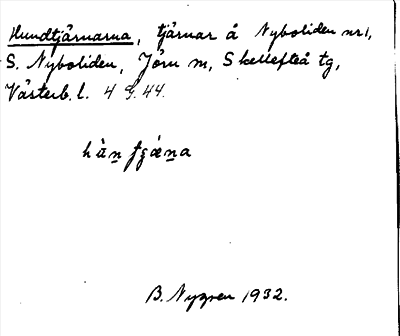 Hundtjärnarna, tjärnar å Nyboliden nr 1,
S. Nyboliden, Jörn m, Skellefteå tg,
Västerb. l. 4 G. 44.
hàn̲ tʃǽn̲a
B. Nygren 1932.